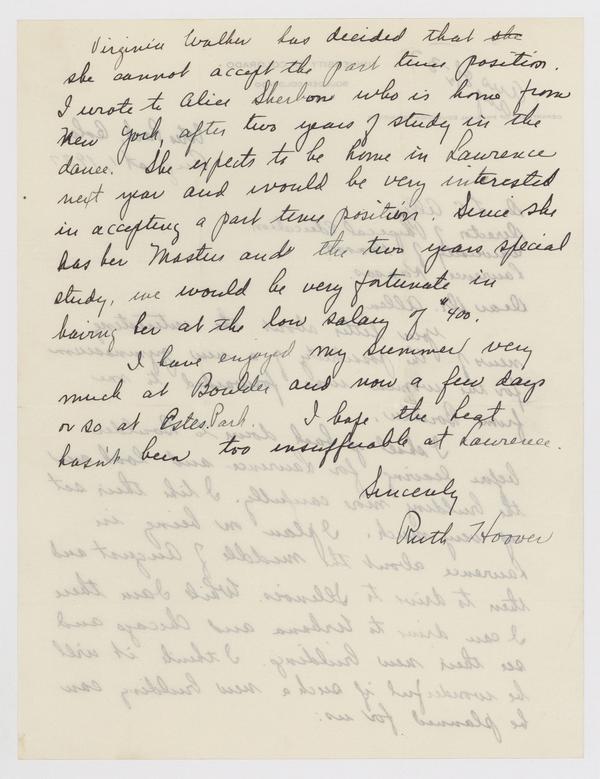 Virginia Walker has decided that she
she cannot accept the part time position.
I wrote to Alice Sherbon who is home from
New York, after two years of study in the
dance. She expects to be home in Lawrence
next year and would be very interested
in accepting a part time position. Since she
has her Masters and the two years special
study, we would be very fortunate in
having her at the low salary of $400.
I have enjoyed my summer very
much at Boulder and now a few days
or so at Estes Park. I hope the heat
hasnt been too insufferable at Lawrence.
Sincerely
Ruth Hoover